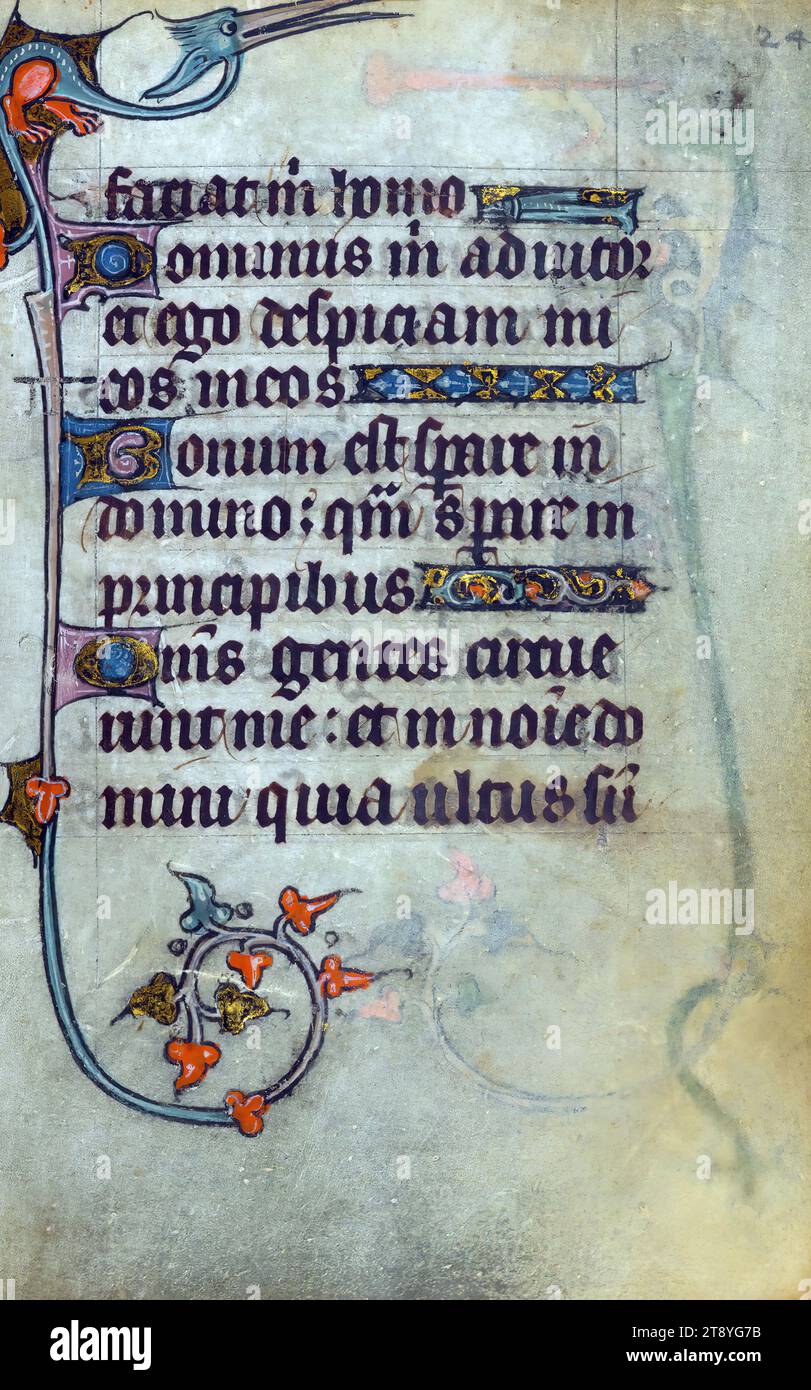 24
faciat m̄ homo
Dominus m̄ adiutor
et ego despiciam ini
cos meos
Bonum est sperare in
domino: qm̄ sperare in
principibus
Om̄s gentes circue
runt me: et in noīe do
mini quia ultus sū
alamy
alamy
alamy
Image ID: 2T8YG7B
www.alamy.com